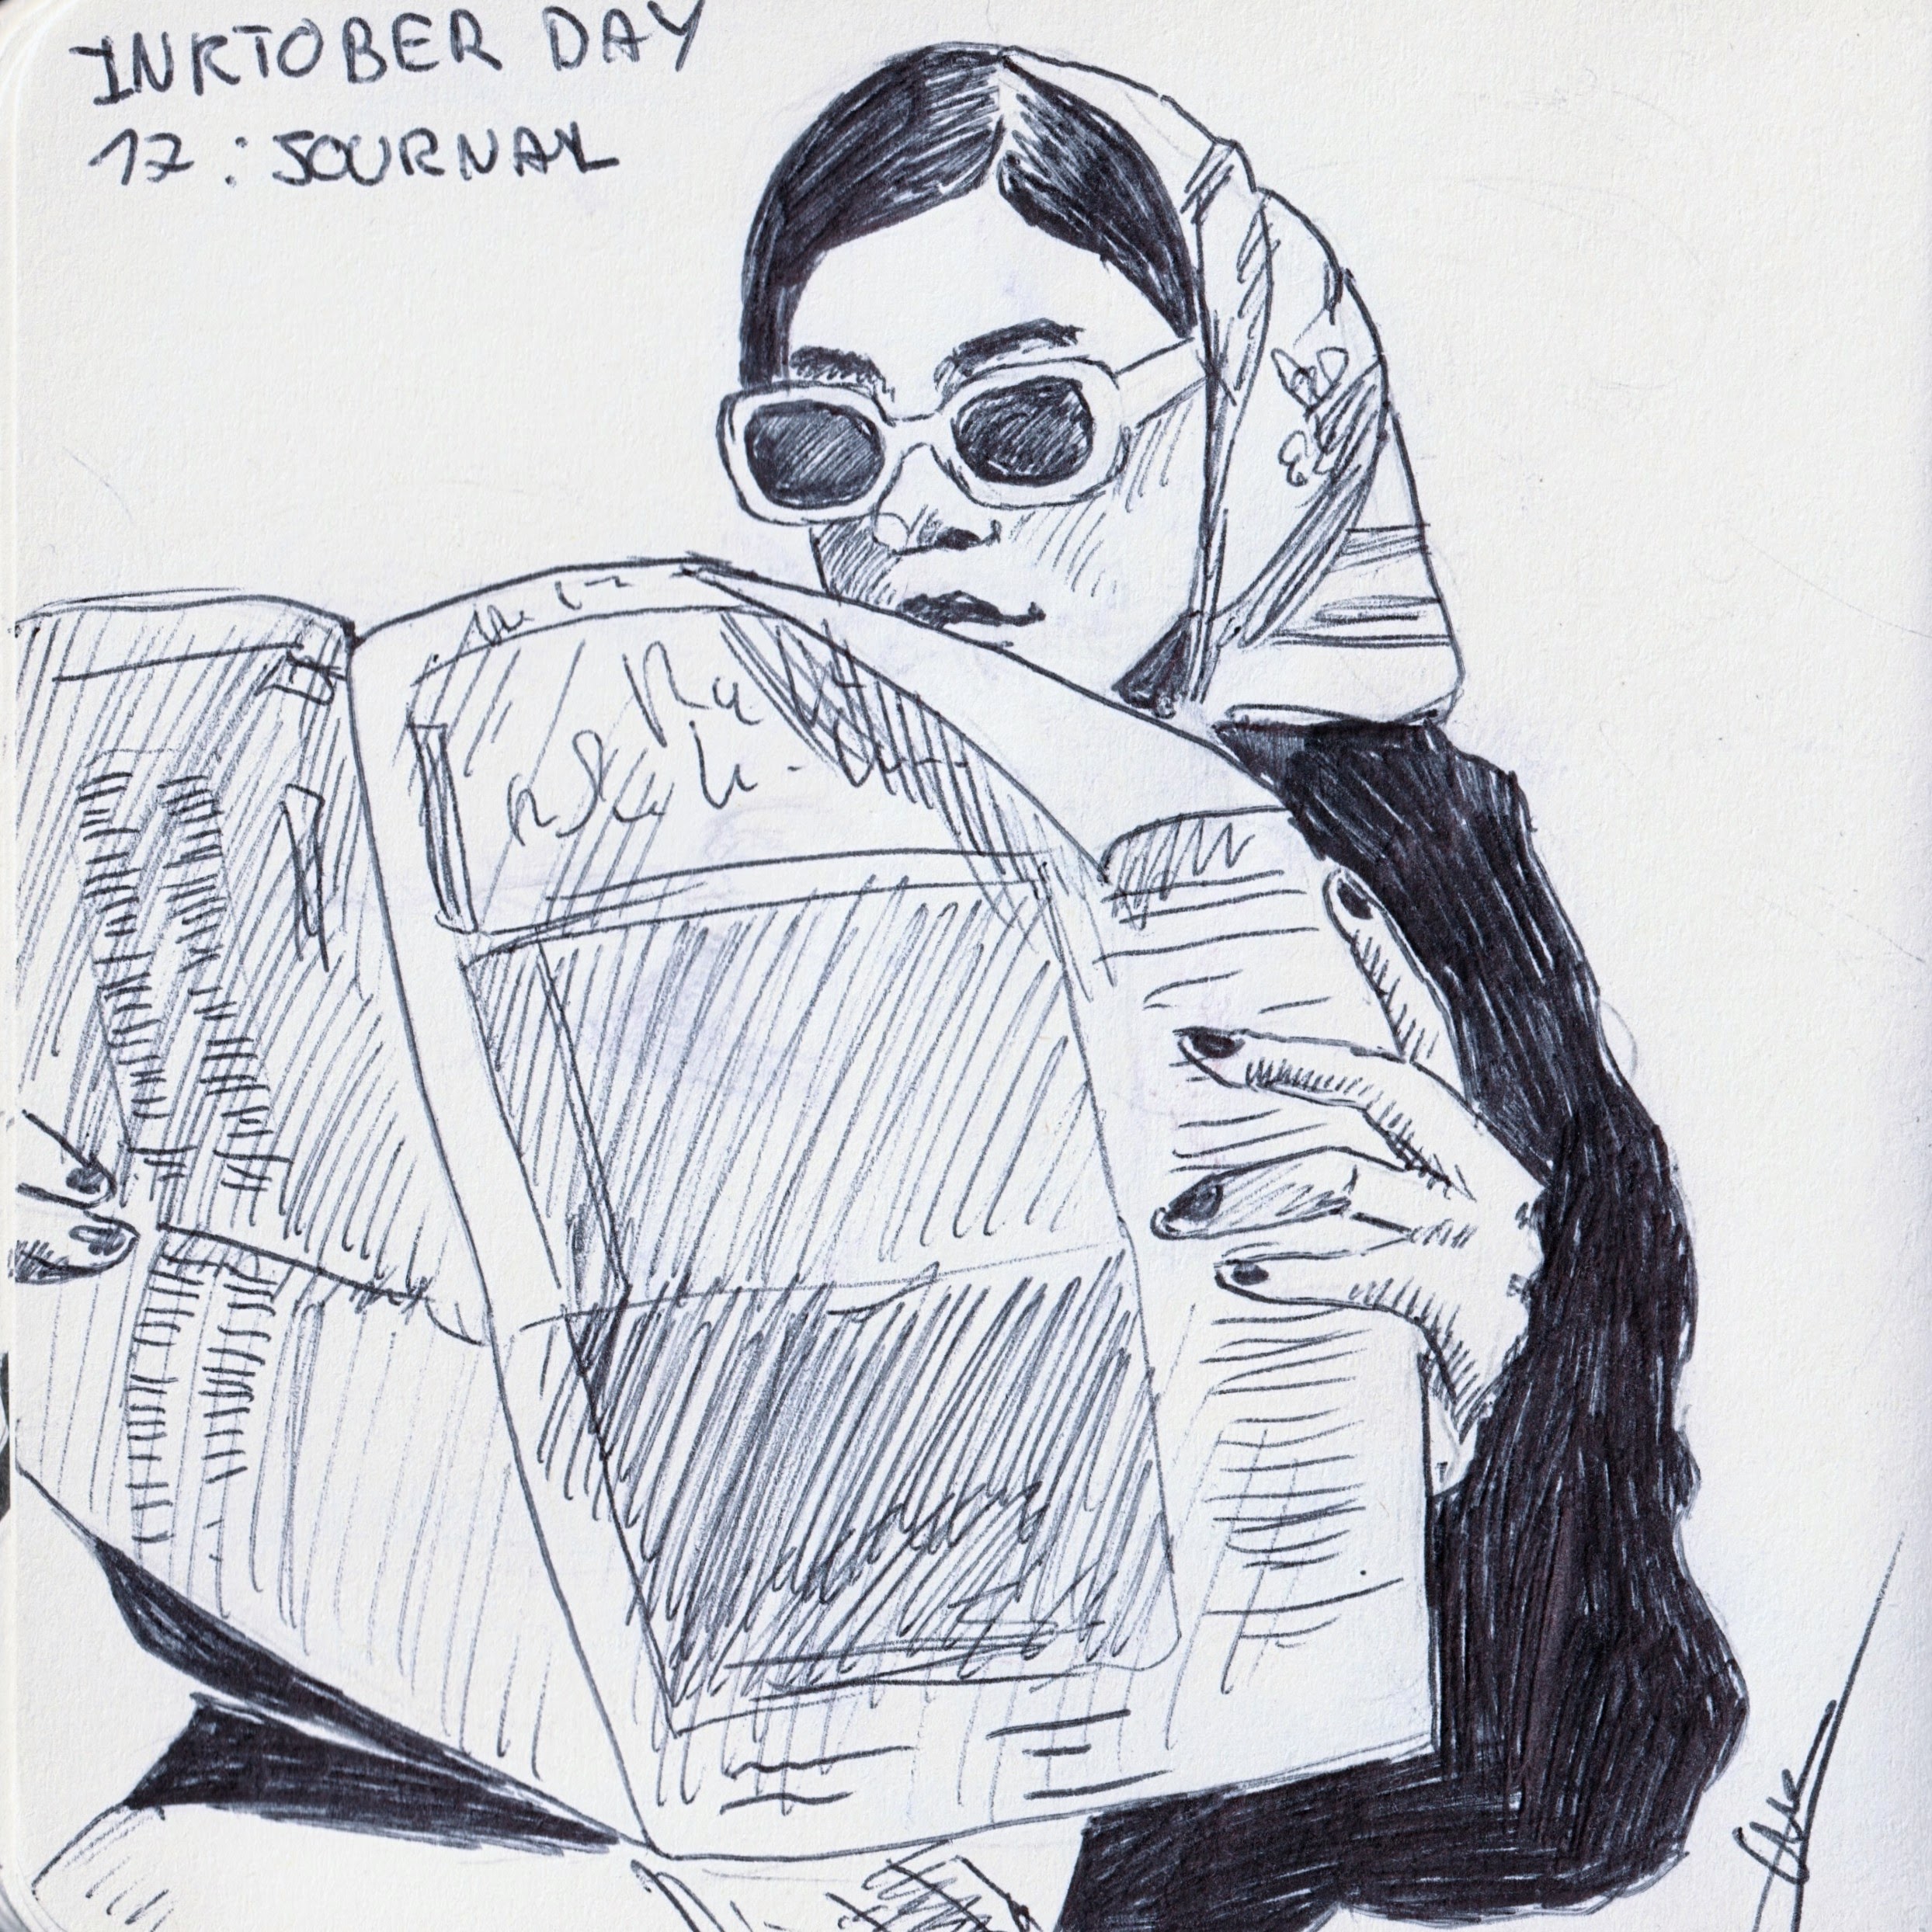 INKTOBER DAY
17 : JOURNAL